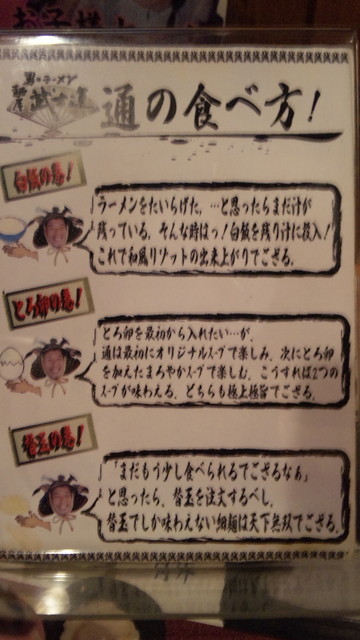 お子様
男のラーメン
麺屋
通の食べ方!
白飯の巻!
ラーメンをたいらげた、…と思ったらまだ汁が
残っている。そんな時はっ!白飯を残り汁に投入!
これで和風リゾットの出来上がりでござる。
とろ卵の巻!
とろ卵を最初から入れたい…が、
通は最初にオリジナルスープで楽しみ、次にとろ卵
を加えたまろやかスープで楽しむ。こうすれば2つの
スープが味わえる。どちらも極上極旨でござる。
替玉の巻!
「まだもう少し食べられるでござるなぁ」
と思ったら、替玉を注文するべし。
替玉でしか味わえない細麺は天下無双でござる。